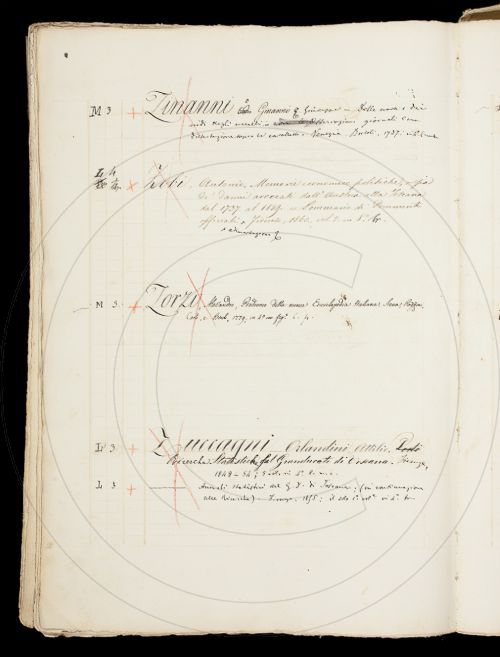 M 3 + Zinanni o Ginanni Giuseppe — Delle uova e dei
nidi degli uccelli
dissertazione sopra le cavallette — Venezia Bortoli, 1737
L 4
+ Zobi, Antonio, Memorie economico politiche, ossia
de' danni arrecati dall'Austria alla Toscana
dal 1737 al 1859 e Sommario di documenti
officiali, Firenze, 1860, vol. 2 in 8°
M 3 + Zorzi, Alessandro, Prodromo della nuova Enciclopedia Italiana, Siena, Pazzini,
Carli, 1779, in 4° fig.
L 3 + Zuccagni Orlandini Attilio,
Ricerche Statistiche sul Granducato di Toscana. Firenze,
1848 – 54
L 3 + Annali statistici del G. D. di Toscana, (in continuazione
alle Ricerche) — Firenze, 1855